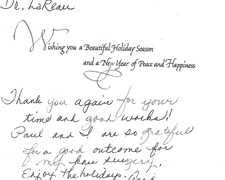 Dr. LaReau
Wishing you a Beautiful Holiday Season
and a New Year of Peace and Happiness
Thank you again for your
time and good works!!
Paul and I are so grateful
for a good outcome for
my knee surgery.
Enjoy the holidays.